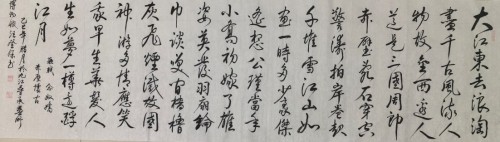 大江東去浪淘
盡千古風流人
物故壘西邊人
道是三國周郎
赤壁亂石穿空
驚濤拍岸卷起
千堆雪江山如
畫一時多少豪傑
遙想公瑾當年
小喬初嫁了雄
姿英發羽扇綸
巾談笑間檣櫓
灰飛煙滅故國
神遊多情應笑
我早生華髮人
生如夢一樽還酹
江月
蘇軾 念奴嬌
赤壁懷古